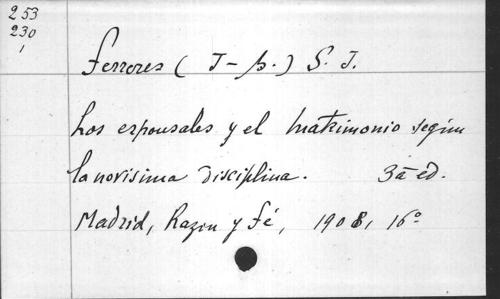 253
230
1
Ferreres (J-b.) S. J.
Los esponsales y el matrimonio segun
la novisima disciplina. 3ª ed.
Madrid, Razon y fé, 1908, 16º